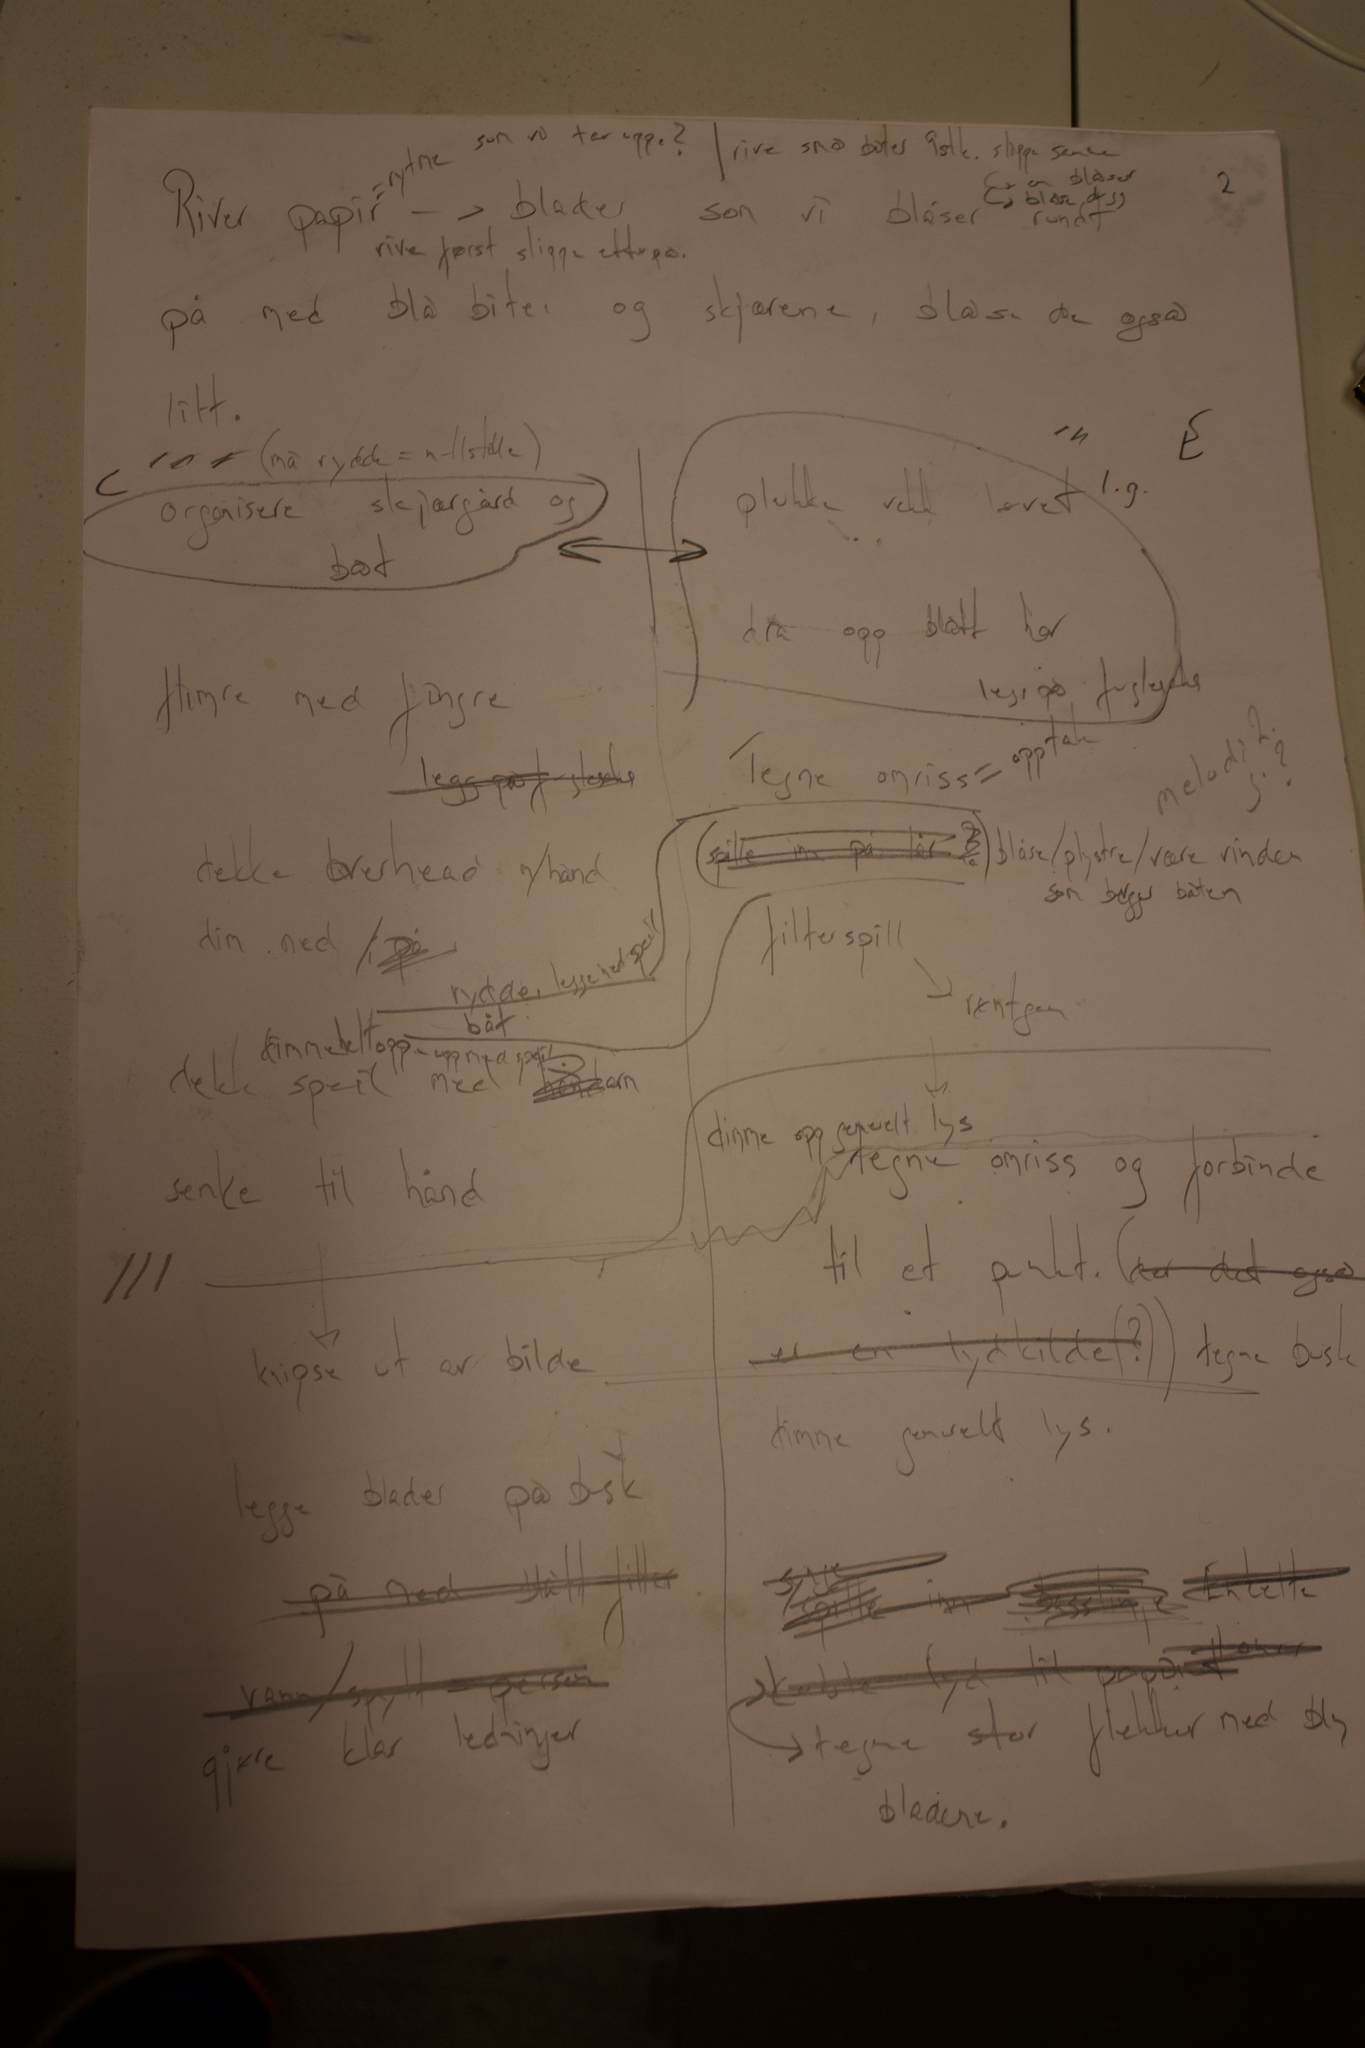 som vi tar opp? | rive små biter 9stk. slippe senere
= rytme
2
River papir —> blader som vi blåser
en blåser
blåse
rundt
rive først slippe etterpå.
på med blå biter og skjærene, blåse de også
litt.
(må rydde = nullstille)
organisere skjærgård og
båt
E
plukke vekk løvet l.g.
dra opp blått hav
legg på fugleskje
flimre med fingre
legg på
Tegne omriss = opptak
melodi?
(spille inn på lår?) blåse/plystre/være vinden
som bøyer båten
dekke overhead m/hånd
dim ned / på
filterspill
røntgen
rydde, legge ned speil
båt
dimme helt opp - opp med speil
dekke speil med arm
senke til hånd
dimme opp generelt lys
tegne omriss og forbinde
til et punkt. (der det også
er en lydkilde(?)) tegne busk
///
knipse ut av bilde
dimme generelt lys.
legge blader på busk
på med blått filter
spille inn Enkelte
vann/spytt - person
koble lyd til papir
gjøre klar ledninger
tegne stor flekker med bly
bladene.